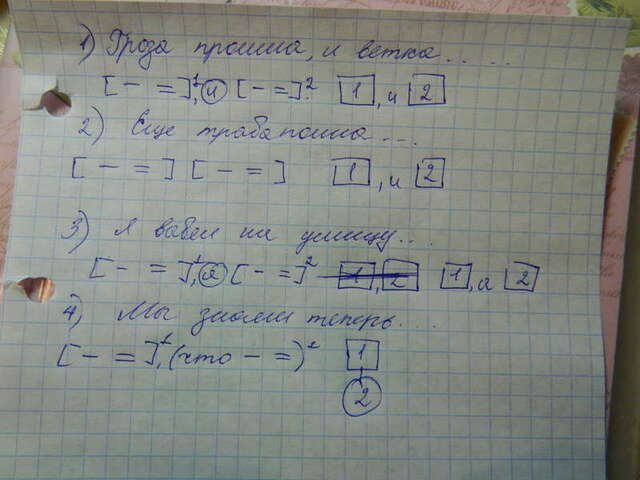 1) Гроза прошла, и ветка.....
[— =]¹, и [— =]². 1, и 2
2) Еще трава полна...
[— =] [— =] 1, и 2
3) Я вышел на улицу...
[— =]¹, а [— =]² 1, 2 1, а 2
4) Мы знаем теперь....
[— =]¹, (что — =)² 1
2